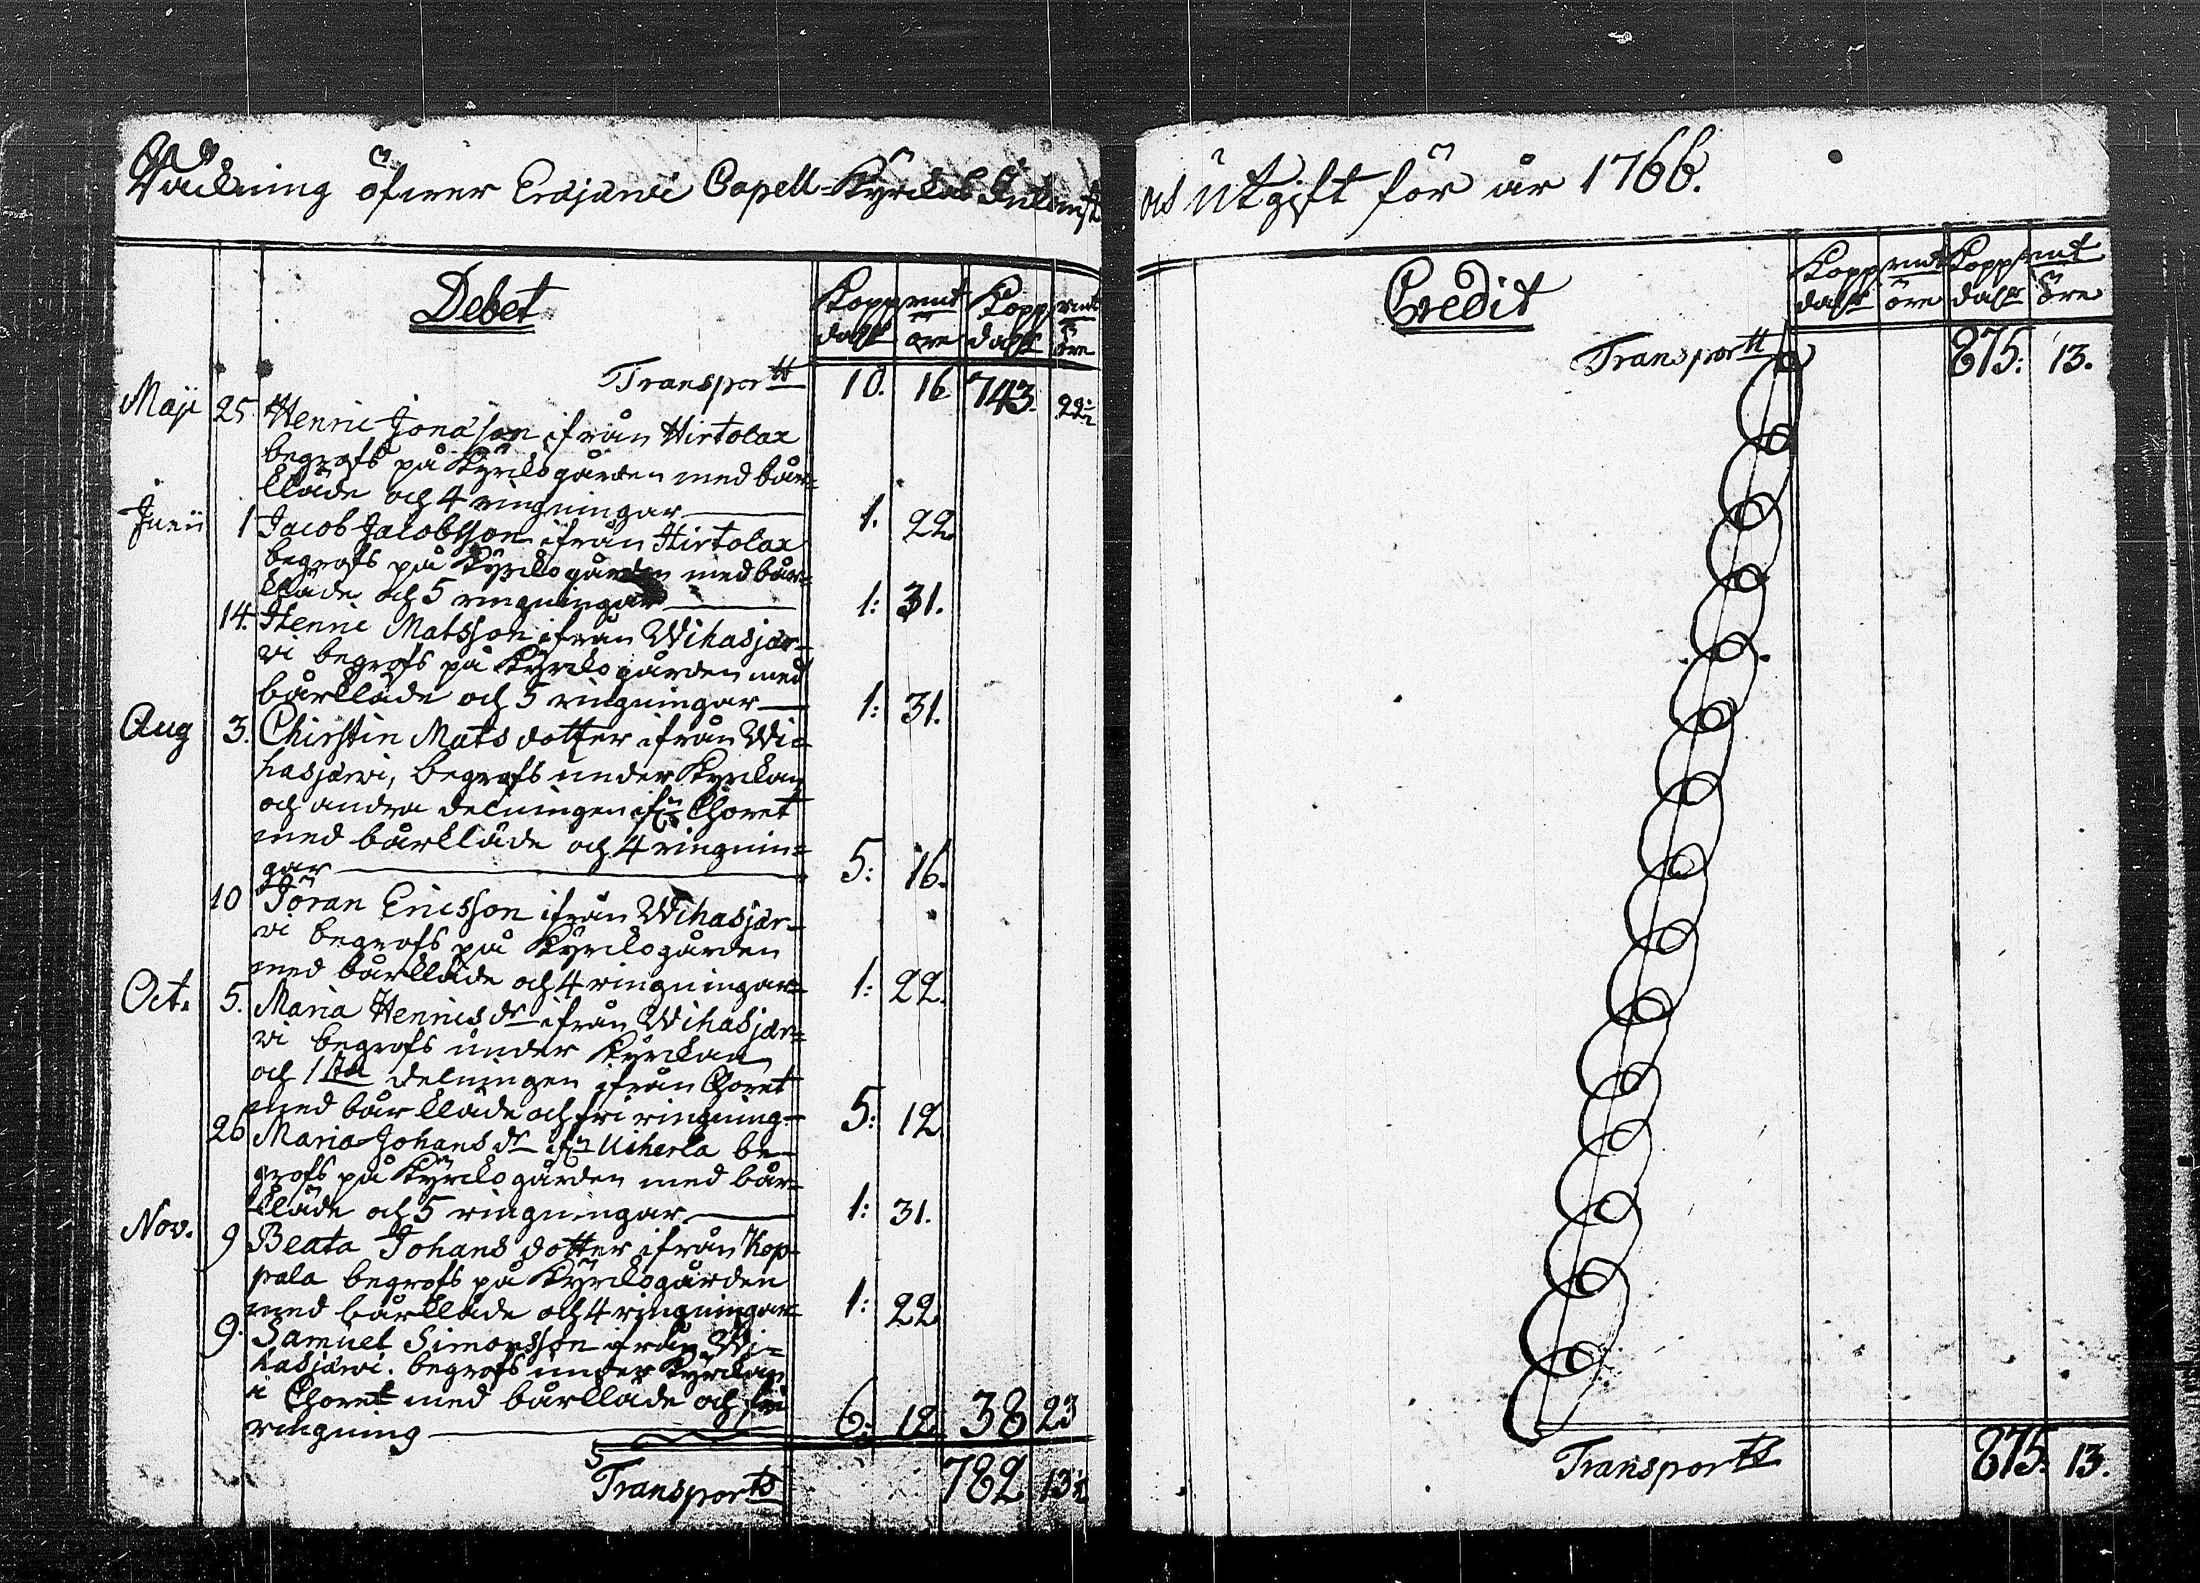 Räkning öfwer Eräjärwi Capell-Kyrckas Inkomst
och Utgift för år 1766.
Debet
Kopp rmt Kopp rmt
dalr öre dalr öre
Transportt 10. 16 743. 22½
Maji 25 Henric Jonasson ifrån Hirtolax
begrofs på Kyrckogården med bår=
kläde och 4 ringningar 1. 22.
Junii 1 Jacob Jacobsson ifrån Hirtolax
begrofs på Kyrckogården med bår=
kläde och 5 ringningar 1: 31.
14. Henric Matsson ifrån Wihasjär=
vi begrofs på Kyrckogården med
bårkläde och 5 ringningar 1: 31.
Aug 3. Chirstin Mats dotter ifrån Wi=
hasjärwi, begrofs under Kyrckan
och andra delningen ifrn Choret
med bårkläde och 4 ringnin=
gar 5: 16.
10 Jöran Ericsson ifrån Wihasjär=
vi begrofs på Kyrckogården
med bårkläde och 4 ringningar 1: 22.
Oct. 5. Maria Henricsdr ifrån Wihasjär=
vi begrofs under Kyrckan
och 1sta delningen ifrån Choret
med bårkläde och fri ringning 5: 12
26 Maria Johansdr ifrn Uiherla be=
grofs på Kyrckogården med bår=
kläde och 5 ringningar 1: 31.
Nov. 9 Beata Johans dotter ifrån Kop=
pala begrofs på Kyrckogården
med bårkläde och 4 ringningar 1: 22
9. Samuel Simonsson ifrån Wi=
hasjärwi. begrofs under Kyrckan
i Choret med bårkläde och fri
ringning 6: 12. 38 23
Transportt 782 13½
Credit
Kopp rmt Kopp rmt
dalr öre dalr öre
Transportt 875: 13.
Transportt 875: 13.